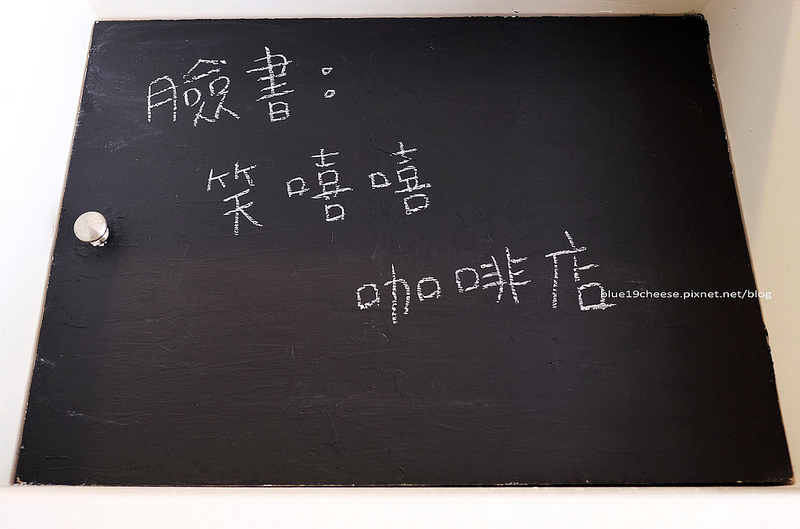 臉書：
笑嘻嘻
咖啡店
blue19cheese.pixnet.net/blog